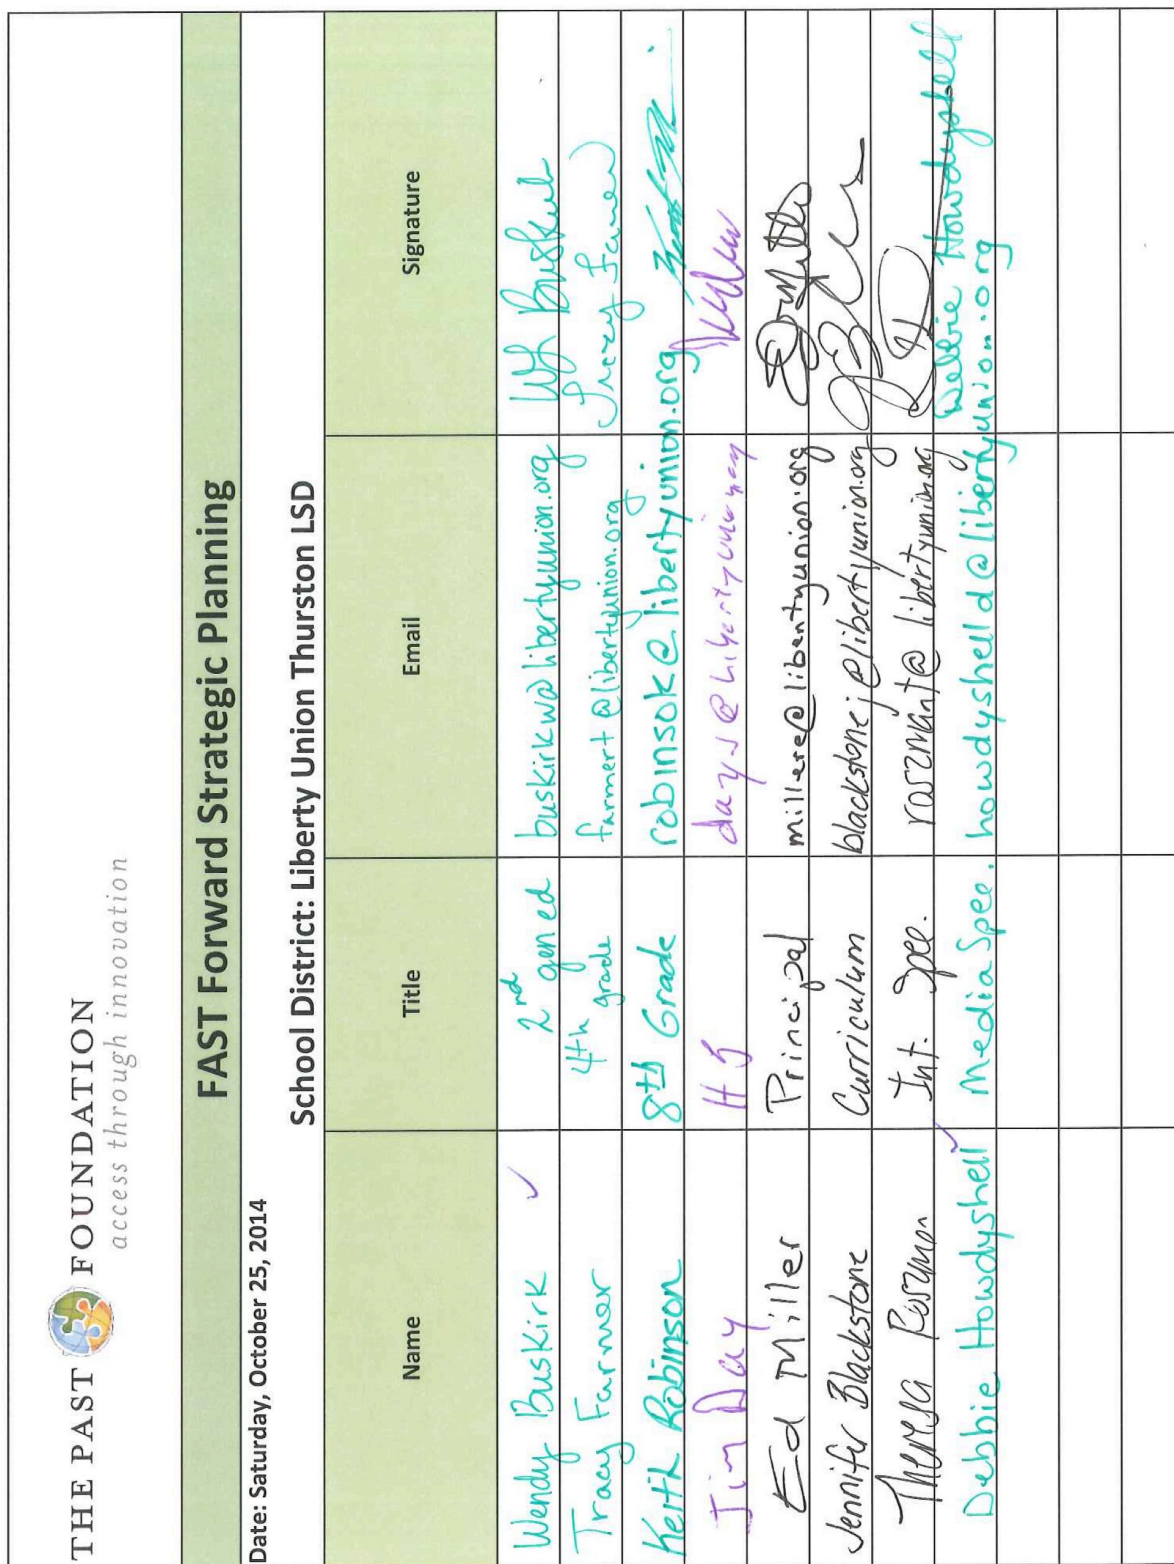 THE PAST FOUNDATION
access through innovation
FAST Forward Strategic Planning
Date: Saturday, October 25, 2014
School District: Liberty Union Thurston LSD
Name Title Email Signature
Wendy Buskirk 2nd gen ed buskirkw@libertyunion.org
Tracy Farmer 4th grade farmert@libertyunion.org Tracy Farmer
Keith Robinson 8th Grade robinsok@libertyunion.org
Jim Day
Ed Miller Principal millere@libertyunion.org
Jennifer Blackstone Curriculum blackstonej@libertyunion.org
Theresa Int. Spec.
Debbie Howdyshell Media Spec. howdyshelld@libertyunion.org Debbie Howdyshell